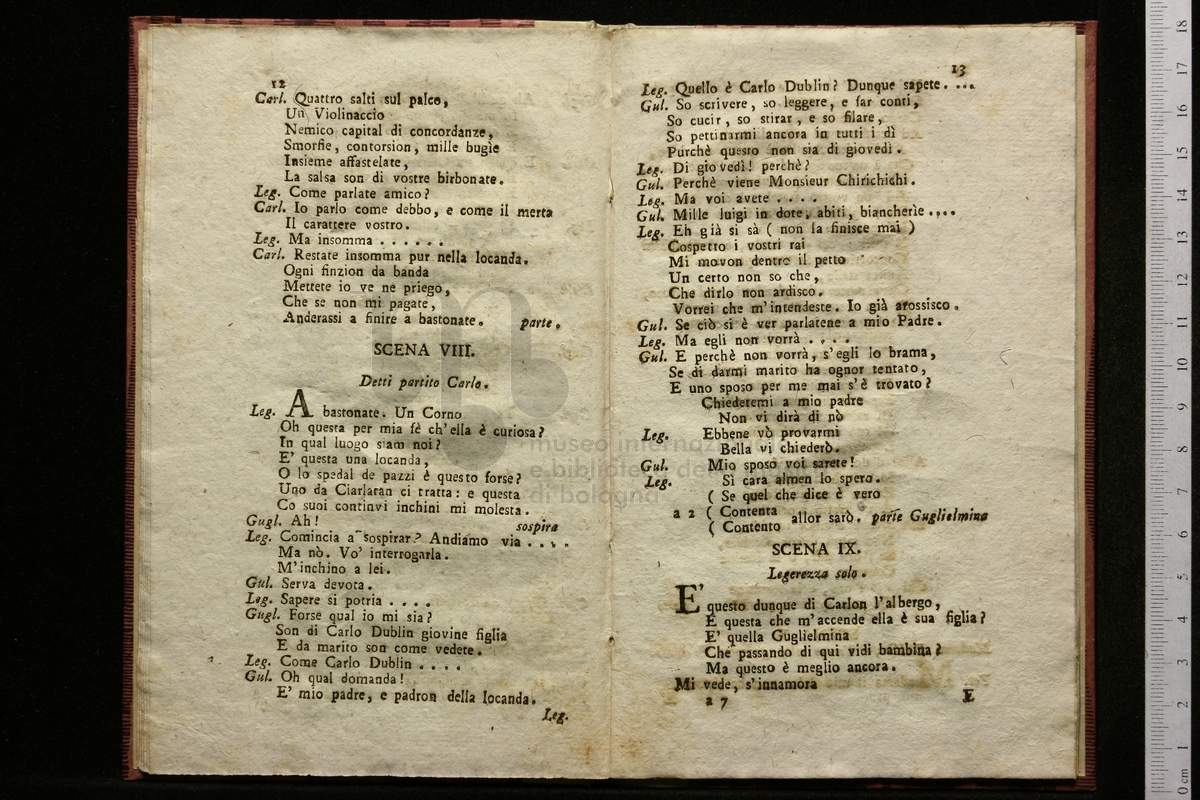 12
Carl. Quattro salti sul palco,
Un Violinaccio
Nemico capital di concordanze,
Smorfie, contorsion, mille bugie
Insieme affastelate,
La salsa son di vostre birbonate.
Leg. Come parlate amico?
Carl. Io parlo come debbo, e come il merta
Il carattere vostro.
Leg. Ma insomma . . . . . .
Carl. Restate insomma pur nella locanda.
Ogni finzion da banda
Mettete io ve ne priego,
Che se non mi pagate,
Anderassi a finire a bastonate. parte.
SCENA VIII.
Detti partito Carlo.
Leg. A bastonate. Un Corno
Oh questa per mia fè ch'ella è curiosa?
In qual luogo siam noi?
E' questa una locanda,
O lo spedal de pazzi è questo forse?
Uno da Ciarlatan ci tratta: e questa
Co suoi continvi inchini mi molesta.
Gugl. Ah! sospira
Leg. Comincia a sospirar? Andiamo via . . . .
Ma nò. Vo' interrogarla.
M'inchino a lei.
Gul. Serva devota.
Leg. Sapere si potria . . . .
Gugl. Forse qual io mi sia?
Son di Carlo Dublin giovine figlia
E da marito son come vedete.
Leg. Come Carlo Dublin . . . .
Gul. Oh qual domanda!
E' mio padre, e padron della locanda.
Leg.
13
Leg. Quello è Carlo Dublin? Dunque sapete. ...
Gul. So scrivere, so leggere, e far conti,
So cucir, so stirar, e so filare,
So pettinarmi ancora in tutti i dì
Purchè questo non sia di giovedì.
Leg. Di giovedì! perchè?
Gul. Perchè viene Monsieur Chirichichi.
Leg. Ma voi avete . . . .
Gul. Mille luigi in dote, abiti, biancherie ....
Leg. Eh già si sà ( non la finisce mai )
Cospetto i vostri rai
Mi movon dentro il petto
Un certo non so che,
Che dirlo non ardisco.
Vorrei che m'intendeste. Io già arossisco.
Gul. Se ciò si è ver parlatene a mio Padre.
Leg. Ma egli non vorrà . . . .
Gul. E perchè non vorrà, s'egli lo brama,
Se di darmi marito ha ognor tentato,
E uno sposo per me mai s'è trovato?
Chiedetemi a mio padre
Non vi dirà di nò
Leg. Ebbene vò provarmi
Bella vi chiederò.
Gul. Mio sposo voi sarete!
Leg. Sì cara almen lo spero.
( Se quel che dice è vero
a 2 ( Contenta
( Contento allor sarò. parte Guglielmina
SCENA IX.
Legerezza solo.
E' questo dunque di Carlon l'albergo,
E questa che m'accende ella è sua figlia?
E' quella Guglielmina
Che passando di qui vidi bambina?
Ma questo è meglio ancora.
Mi vede, s'innamora
a 7
E
museo internazionale
e biblioteca della musica
di bologna
0 cm 1 2 3 4 5 6 7 8 9 10 11 12 13 14 15 16 17 18